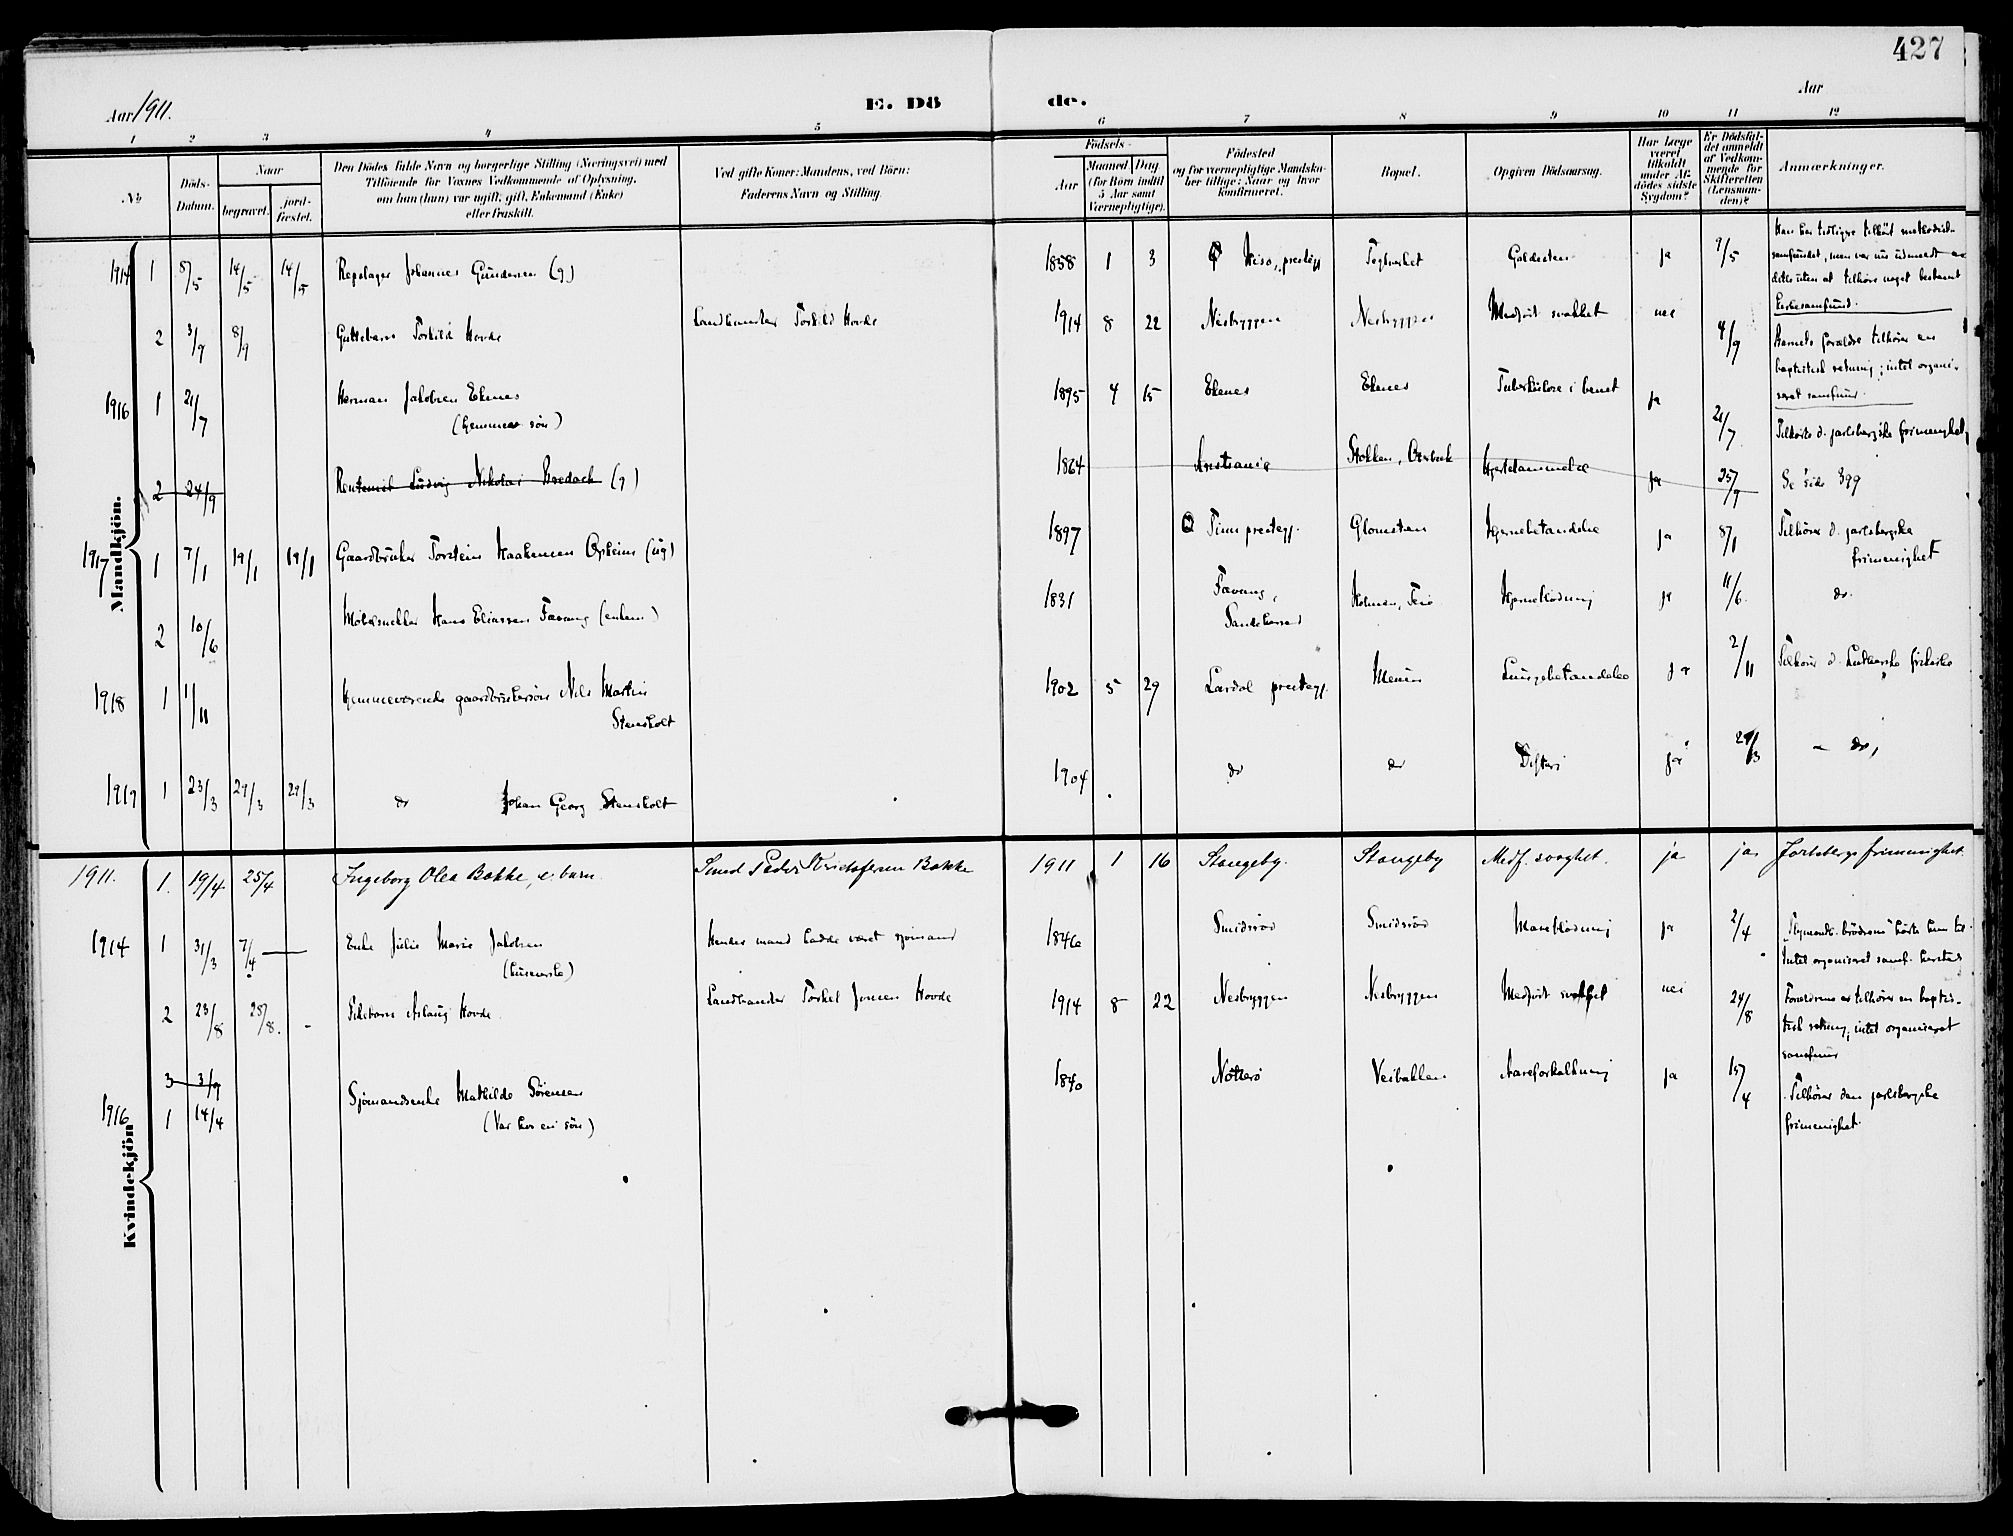 427
Aar 1911.
E. Dö
de.
Aar
1 2 3 4 5 6 7 8 9 10 11 12
No
Döds-
Datum.
Naar
begravet.
jord-
fæstet.
Den Dödes fulde Navn og borgerlige Stilling (Næringsvei) med
Tilföiende for Voxnes Vedkommende af Oplysning,
om han (hun) var ugift, gift, Enkemand (Enke)
eller fraskilt.
Ved gifte Koner: Mandens, ved Börn:
Faderens Navn og Stilling.
Födsels-
Aar
Maaned
Dag
(for Börn indtil
5 Aar samt
Værnepligtige).
Födested
og for værnepligtige Mandska-
ber tillige: Naar og hvor
konfirmeret.
Bopæl.
Opgiven Dödsaarsag.
Har Læge
været
tilkaldt
under Af-
dödes sidste
Sygdom?
Er Dödsfal-
det anmeldt
af Vedkom-
mende for
Skifteretten
(Lensman-
den)?
Anmærkninger.
Mandkjön.
1914 1 8/5 14/5 14/5 Repslager Johannes Gundersen (g) 1858 1 3 prestegj Teglverket Galdesten ja 9/5
Han har tidligere tilhørt metodist-
samfundet, men var nu utmeldt av
dette uten at tilhøre noget bestemt
kirkesamfund.
2 3/9 8/9 Guttebarn Torkild Hovde Landhandler Torkild Hovde 1914 8 22 Nesbryggen Nesbryggen Medfødt svakhet nei 4/9
Barnets forældre tilhører en
baptistisk retning; intet organi-
seret samfund.
1916 1 21/7 Herman Jakobsen Ekenes 1895 4 15 Ekenes Ekenes Tuberkulose i benet ja 21/7
(hjemmev. søn)
Tilhørte d. jarlsbergske frimenighet
2 24/9 Rentenist Ludvig Nikolai Bredach (g) 1864 Kristiania Stokken, Hjertelammelse ja 25/9 Se side 399
1917 1 7/1 19/1 19/1 Gaardbruker Torstein Haakensen (ug) 1897 Tinn prestegj. Glomsten Hjernebetændelse ja 8/1 Tilhører d. jarlsbergske
frimenighet
2 10/6 Møbelsnekker Hans Eliassen Favang (enkem) 1831 Favang,
Sandeherred Holmen, Teie Hjerneblødning ja 11/6 do.
1918 1 1/11 Hjemmeværende gaardbrukersøn Nils Martin
Stensholt 1902 5 29 Lardal prestegj. Lungebetændelse ja 2/11 Tilhører d. Lutherske frikirke
1919 1 23/3 29/3 29/3 do Johan Georg Stensholt 1904 do do Difteri ja 29/3 - do,
Kvindekjön
1911. 1. 19/4 25/4 Ingeborg Olea Bakke, e. barn Smed Peder Kristofersen Bakke 1911 1 16 Stangeby. Stangeby Medf. svaghet. ja ja Jarlsbergs frimenighet.
1914 1 31/3 7/4 Enke Julie Marie Jakobsen Hendes mand hadde været sjømand 1846 Smidsrød Smidsrød Maveblødning ja 2/4
(husmorske)
Plymouth-brødrene hørte hun til.
Intet organiseret samf. hersteds
2 23/8 25/8. - Pikebarn Aslaug Hovde. Landhandler Torkel Jensen Hovde 1914 8 22 Nesbryggen Nesbryggen Medfødt svakhet nei 24/8
Forældrene tilhører en baptis-
tisk retning; intet organiseret
samfund
3 3/9
1916 1 14/4 Sjømandsenke Mathilde Sørensen 1840 Nøtterø Veibakken Aareforkalkning ja 15/4
(Var hos en søn)
Tilhører den jarlsbergske
frimenighet.